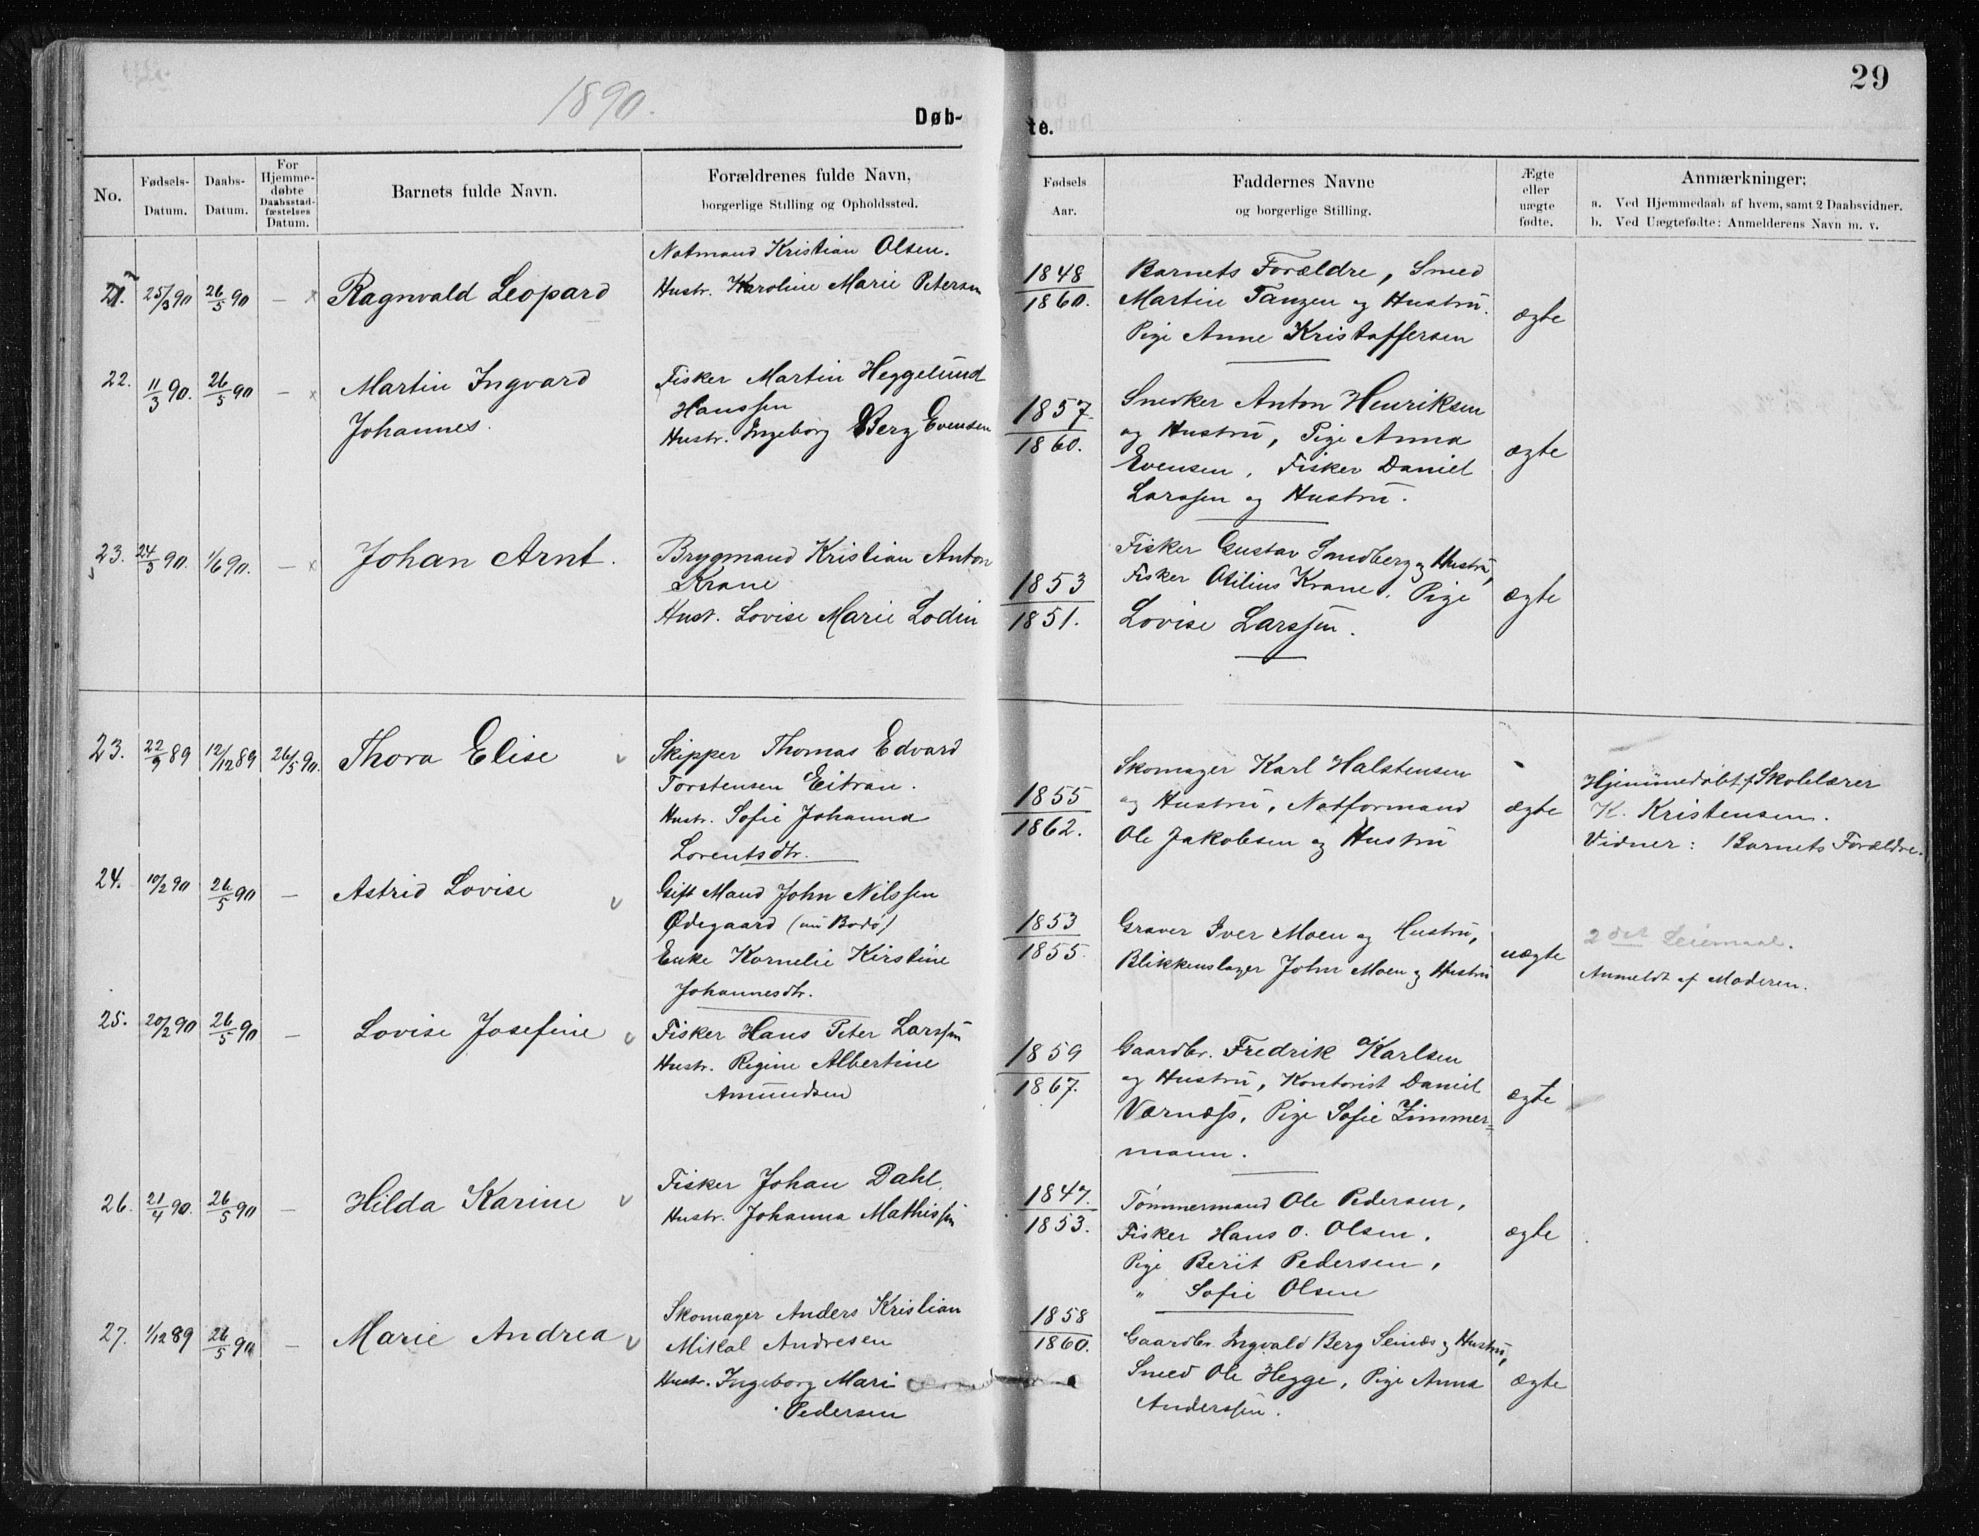 1890.
29
Døb-
te.
No.
Fødsels-
Datum.
Daabs-
Datum.
For
Hjemme-
døbte
Daabsstad-
fæstelses
Datum.
Barnets fulde Navn.
Forældrenes fulde Navn,
borgerlige Stilling og Opholdssted.
Fødsels
Aar.
Faddernes Navne
og borgerlige Stilling.
Ægte
eller
uægte
fødte.
Anmærkninger;
a. Ved Hjemmedaab af hvem, samt 2 Daabsvidner.
b. Ved Uægtefødte: Anmelderens Navn m. v.
21. 25/3 90 26/5 90 —
Ragnvald Leopard
Notmand Kristian Olsen.
Hustr. Karoline Marie Petersen
1848
1860.
Barnets Forældre, Smed
Martin Tanzen og Hustru.
Pige Anne Kristoffersen
ægte
22. 11/3 90. 26/5 90 —
Martin Ingvard
Johannes.
Fisker Martin Heggelund
Hanssen
Hustr. Ingeborg Berg Evensen
1857
1860.
Snedker Anton Henriksen
og Hustru, Pige Anna
Evensen, Fisker Daniel
Larssen og Hustru.
ægte
23. 24/5 90. 1/6 90. —
Johan Arnt.
Brygmand Kristian Anton
Krane
Hust. Lovise Marie Lodin
1853
1851.
Fisker Gustav Smedberg og Hustru,
Fisker Otilius Krane. Pige
Lovise Larssen.
ægte
23. 22/9 89 12/12 89 26/5 90.
Thora Elise
Skipper Thomas Edvard
Torstensen Eitran.
Hustr. Sofie Johanna
Lorentsdtr.
1855
1862.
Skomager Karl Halstensen
og Hustru, Notformand
Ole Jakobsen og Hustru
ægte
Hjemmedøbt af Skolelærer
K. Kristensen.
Vidner: Barnets Forældre.
24. 10/2 90 26/5 90 —
Astrid Lovise
Gift Mand John Nilssen
Ødegaard (nu Bodø)
Enke Kornelie Kirstine
Johannesdtr.
1853
1855.
Graver Iver Moen og Hustru,
Blikkenslager John Moen og Hustru
uægte
2det Leiemaal.
Anmeldt af Moderen.
25. 20/2 90 26/5 90 —
Lovise Josefine
Fisker Hans Peter Larssen
Hustr. Regine Albertine
Amundsen
1859
1867.
Gaardbr. Fredrik Karlsen
og Hustru, Kontorist Daniel
Værnæss, Pige Sofie Zimmer=
mann.
ægte
26. 21/4 90. 26/5 90 —
Hilda Karine
Fisker Johan Dahl.
Hustr. Johanna Mathissen
1847.
1853.
Tømmermand Ole Pedersen,
Fisker Hans O. Olsen,
Pige Berit Pedersen,
" Sofie Olsen
ægte
27. 1/12 89 26/5 90 —
Marie Andrea
Skomager Anders Kristian
Mikal Andresen
Hustr. Ingeborg Mari
Pedersen
1858
1860.
Gaardbr. Ingvald Berg Seines og Hustru,
Smed Ole Hegge, Pige Anna
Anderssen.
ægte